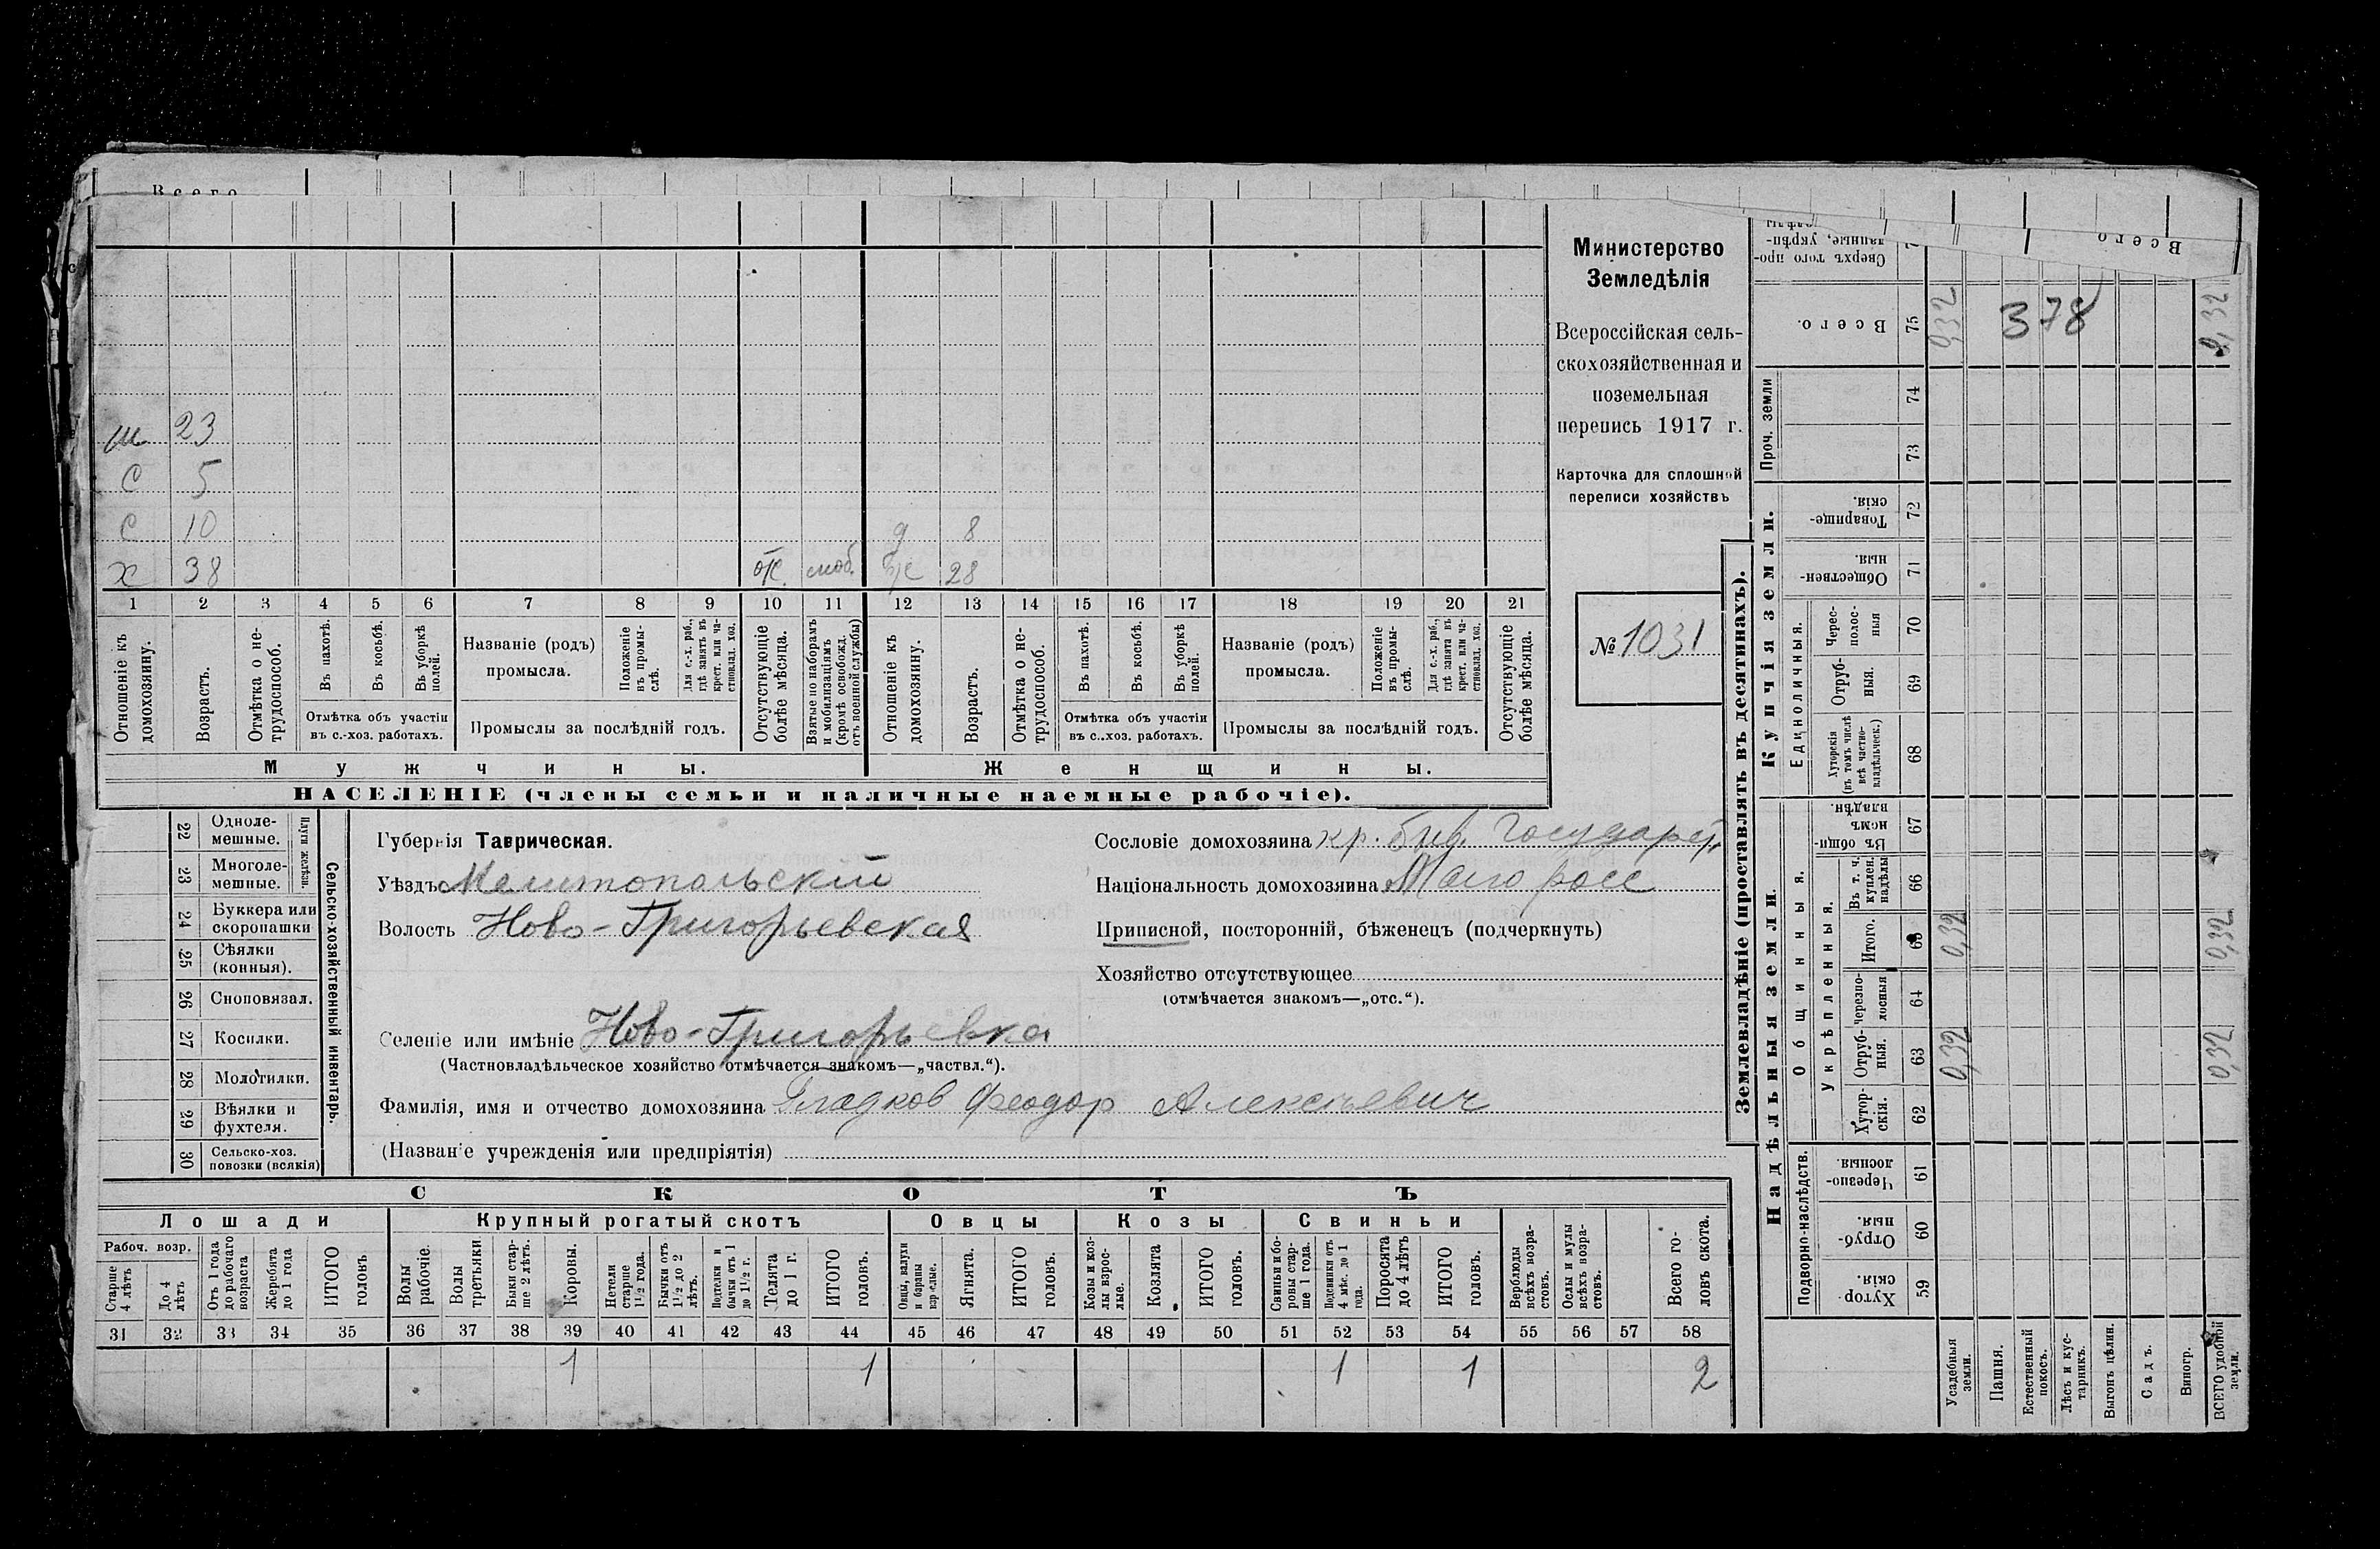 Всего
Всего
М 23
С 5
С 10 д 8
Х 38 моб. 28
1 2 3 4 5 6 7 8 9 10 11 12 13 14 15 16 17 18 19 20 21
Отношеніе къ домохозяину.
Возрастъ.
Отмѣтка о не-трудоспособ.
Въ пахотѣ.
Въ косьбѣ.
Въ уборкѣ полей.
Отмѣтка объ участіи въ с.-хоз. работахъ.
Названіе (родъ) промысла.
Положеніе въ промы-слѣ.
Для с.-х. раб., гдѣ занятъ въ крест. или ча-стновлад. хоз.
Промыслы за послѣдній годъ.
Отсутствующіе болѣе мѣсяца.
Взятые по наборамъ и мобилизаціямъ (кромѣ освобожд. отъ военной службы)
Отношеніе къ домохозяину.
Возрастъ.
Отмѣтка о не-трудоспособ.
Въ пахотѣ.
Въ косьбѣ.
Въ уборкѣ полей.
Отмѣтка объ участіи въ с.-хоз. работахъ.
Названіе (родъ) промысла.
Положеніе въ промы-слѣ.
Для с.-х. раб., гдѣ занята въ крест. или ча-стновлад. хоз.
Промыслы за послѣдній годъ.
Отсутствующіе болѣе мѣсяца.
Мужчины.
Женщины.
НАСЕЛЕНІЕ (члены семьи и наличные наемные рабочіе).
Министерство
Земледѣлія
Всероссійская сель-
скохозяйственная и
поземельная
перепись 1917 г.
Карточка для сплошной
переписи хозяйствъ
№ 1031
22 Одноле-мешные.
23 Многоле-мешные.
Плуги желѣзн.
24 Буккера или скоропашки
25 Сѣялки (конныя).
26 Сноповязал.
27 Косилки.
28 Молотилки.
29 Вѣялки и фухтеля.
30 Сельско-хоз. повозки (всякія)
Сельско-хозяйственный инвентарь.
Губернія Таврическая.
Уѣздъ Мелитопольскій
Волость Ново-Григорьевская
Селеніе или имѣніе Ново-Григорьевка
(Частновладѣльческое хозяйство отмѣчается знакомъ—„частвл.“).
Фамилія, имя и отчество домохозяина Гладков Феодор Алексѣевич
(Названіе учрежденія или предпріятія)
Сословіе домохозяина кр. быв. Государст.
Національность домохозяина Малоросс
Приписной, посторонній, бѣженецъ (подчеркнуть)
Хозяйство отсутствующее
(отмѣчается знакомъ—„отс.“).
СКОТЪ
Лошади
Крупный рогатый скотъ
Овцы
Козы
Свиньи
Рабоч. возр.
Старше 4 лѣтъ
До 4 лѣтъ
Отъ 1 года до рабочаго возраста
Жеребята до 1 года
ИТОГО головъ
Волы рабочіе.
Волы третьяки
Быки стар-ше 2 лѣтъ.
Коровы.
Нетели старше 1½ года.
Бычки отъ 1½ до 2 лѣтъ.
Подтелки и бычки отъ 1 до 1½ г.
Телята до 1 г.
ИТОГО головъ.
Овцы, валухи и бараны взрослые.
Ягнята.
ИТОГО головъ.
Козы и коз-лы взрос-лые.
Козлята
ИТОГО головъ.
Свиньи и бо-ровы стар-ше 1 года.
Подсвинки отъ 4 мѣс. до 1 года.
Поросята до 4 лѣтъ
ИТОГО головъ.
Верблюды всѣхъ возра-стовъ.
Ослы и мулы всѣхъ возра-стовъ.
Всего го-ловъ скота.
31 32 33 34 35 36 37 38 39 40 41 42 43 44 45 46 47 48 49 50 51 52 53 54 55 56 57 58
1 1 1 1 2
Землевладѣніе (проставлять въ десятинахъ).
Купчія земли.
Надѣльныя земли.
Сверхъ того про-данные, укрѣп-
Всего. 75 0,32 378 0,32
Проч. земли
74
73
Товарище-скія. 72
Обществен-ныя. 71
Единоличныя.
Черес-полос-ныя 70
Отруб-ныя. 69
Хуторскія (въ томъ числѣ всѣ частно-владѣльческ.) 68
Общинныя.
Въ общи-номъ владѣн. 67
Укрѣпленныя.
Въ т. ч. куплен. надѣлы 66
Итого. 65 0,32 0,32
Черезпо-лосныя 64
Отруб-ныя. 63 0,32 0,32
Хутор-скія. 62
Подворно-наслѣдств.
Черезпо-лосныя. 61
Отруб-ныя. 60
Хутор-скія. 59
Усадебныя земли.
Пашня.
Естественный покосъ.
Лѣсъ и кус-тарникъ.
Выгонъ цѣлин.
Садъ.
Виногр.
ВСЕГО удобной земли.